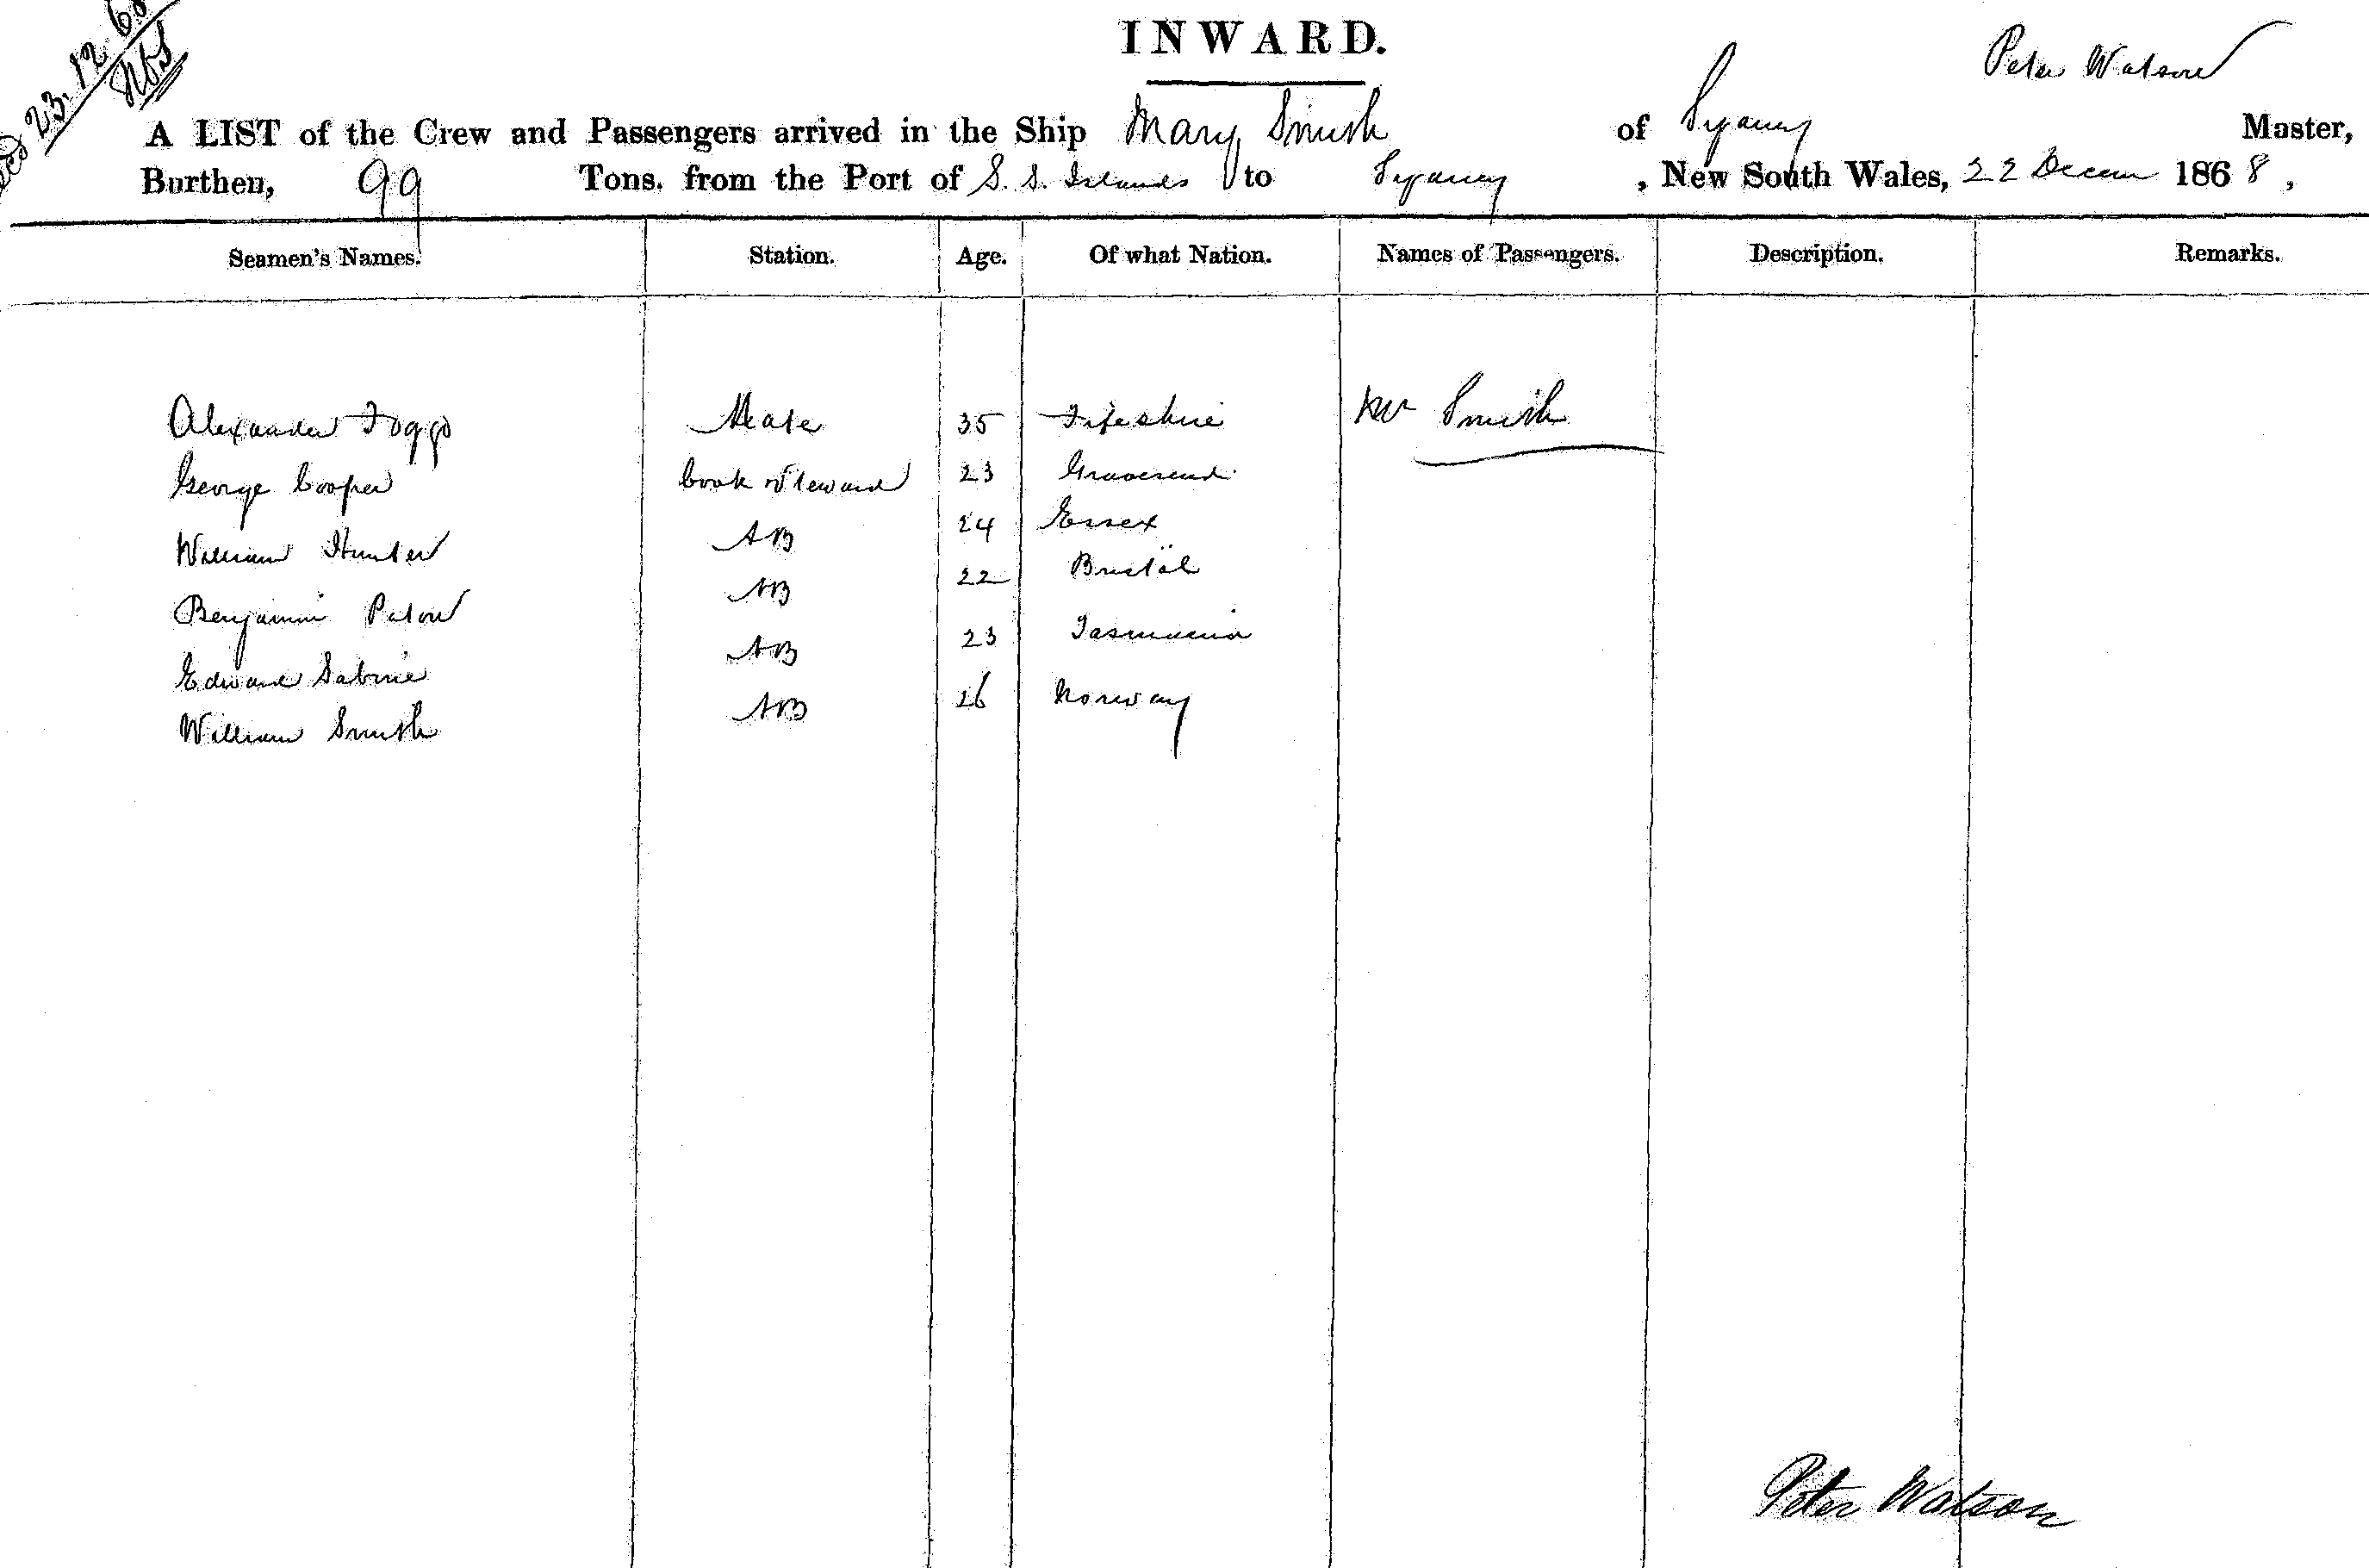 23.12.68
INWARD.
Peter Watson
A LIST of the Crew and Passengers arrived in the Ship Mary Smith of Sydney Master,
Burthen, 99 Tons. from the Port of S. S. Islands to Sydney, New South Wales, 22 Decem 1868,
Seamen's Names. Station. Age. Of what Nation. Names of Passengers. Description. Remarks.
Alexander Foggo Mate 35 Fifeshire Mr Smith
George Cooper Cook & Steward 23 Gravesend
William Hunter AB 24 Essex
Benjamin Paton AB 22 Bristol
Edward Sabine AB 23 Tasmania
William Smith AB 26 Norway
Peter Watson